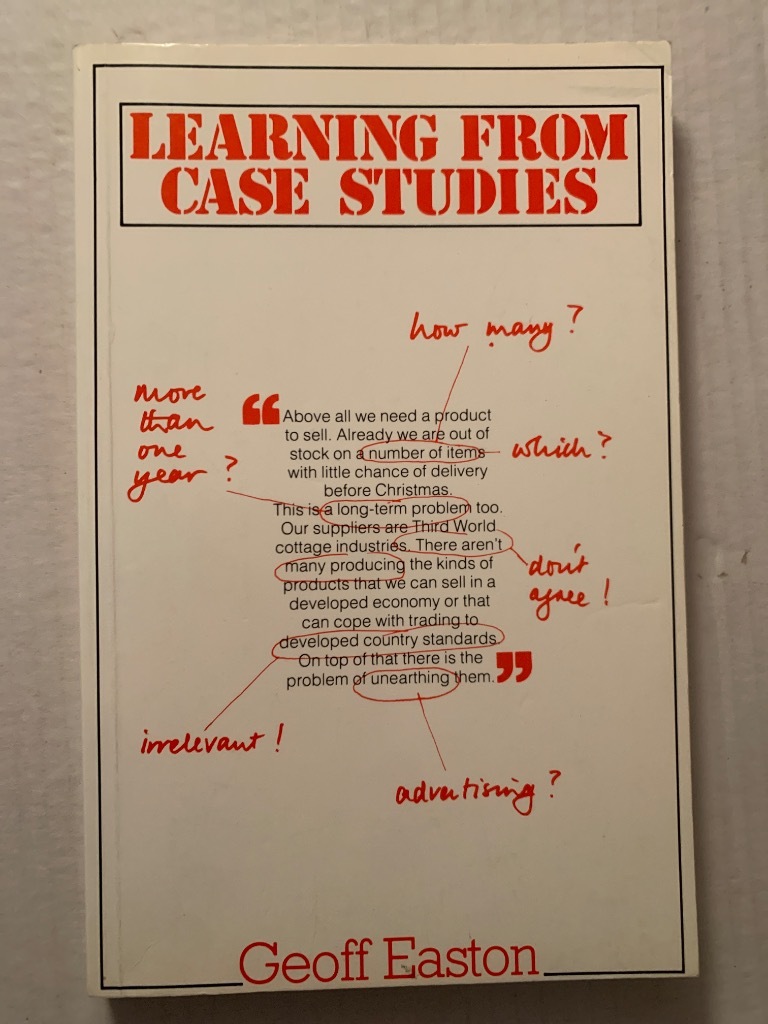 LEARNING FROM
CASE STUDIES
how many?
more
than
one
year?
“Above all we need a product
to sell. Already we are out of
stock on a number of items
which?
with little chance of delivery
before Christmas.
This is a long-term problem too.
Our suppliers are Third World
cottage industries. There aren't
many producing the kinds of
don't
agree!
products that we can sell in a
developed economy or that
can cope with trading to
developed country standards.
On top of that there is the
problem of unearthing them.”
irrelevant!
advertising?
Geoff Easton